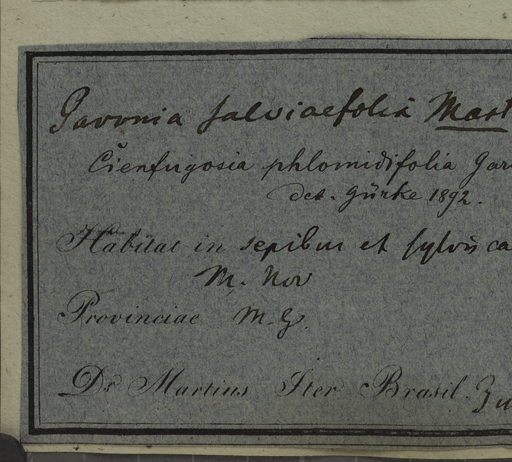 Pavonia salviaefolia Mart
Cienfugosia phlomidifolia Gar
det. Gürke 1892.
Habitat in sepibus et sylvis ca
M. Nov
Provinciae M. G.
Dr. Martius Iter Brasil.